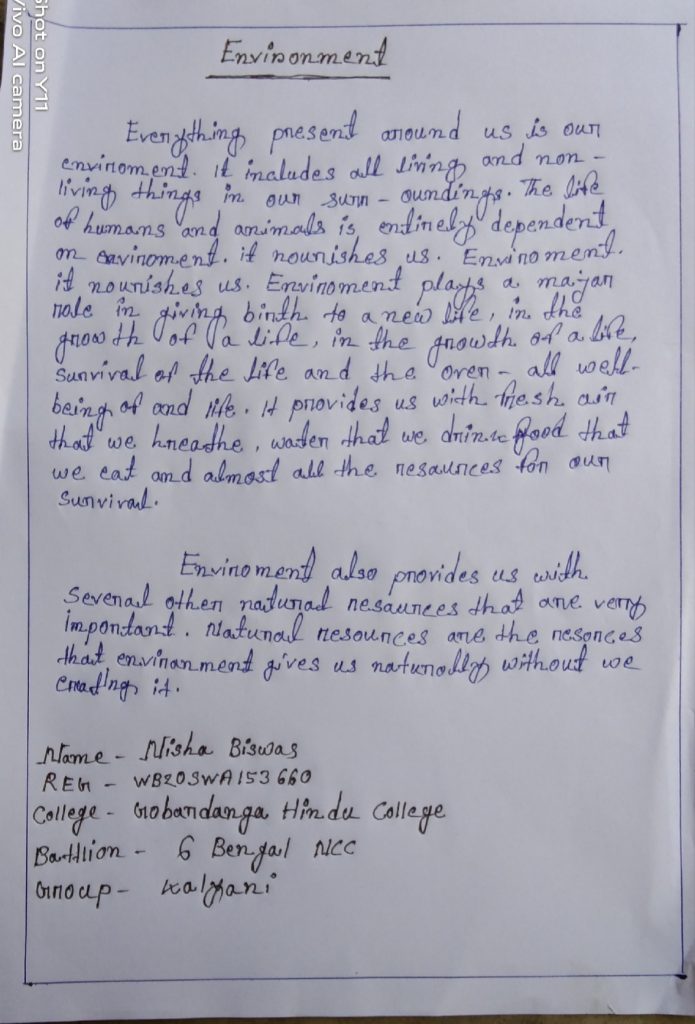 Shot on Y11
Vivo AI camera
Environment
Everything present around us is our
enviroment. it includes all living and non -
living things in our surr - oundings. The life
of humans and animals is entirely dependent
on enviroment. it nourishes us. Enviroment.
it nourishes us. Enviroment plays a major
role in giving birth to a new life, in the
growth of a life, in the growth of a life,
survival of the life and the over - all well-
being of and life. It provides us with fresh air
that we breathe, water that we drink food that
we eat and almost all the resaurces for our
survival.
Enviroment also provides us with
several other natural resaurces that are very
important. Natural resources are the resorces
that enviranment gives us naturally without we
creating it.
Name - Nisha Biswas
REG - WB20SWA153660
College - Gobardanga Hindu College
Battlion - 6 Bengal NCC
Group - Kalyani